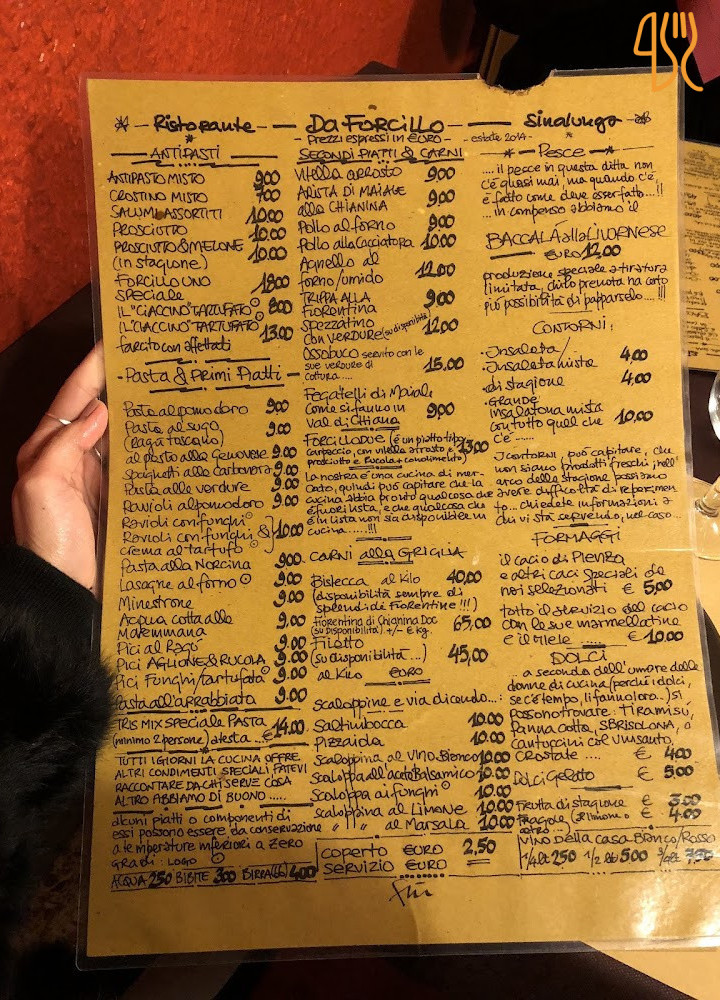 Ristorante - Da Forcillo - Sinalunga
- Prezzi espressi in €uro - - estate 2014 -
ANTIPASTI
ANTIPASTO MISTO 9,00
CROSTINO MISTO 7,00
SALUMI ASSORTITI 10,00
PROSCIUTTO 10.00
PROSCIUTTO & MELONE 10.00
(in stagione)
FORCILLO UNO 18,00
SPECIALE
IL "CIACCINO" TARTUFATO 8,00
IL "CIACCINO" TARTUFATO 13.00
farcito con affettati
- Pasta & Primi Piatti -
Pasta al pomodoro 9,00
Pasta al sugo 9,00
(ragù toscano)
al pesto alla Genovese 9.00
Spaghetti alla carbonara 9.00
Pasta alle verdure 9.00
Ravioli al pomodoro 9.00
Ravioli con funghi
Ravioli con funghi & 10.00
crema al tartufo
Pasta alla Norcina 9.00
Lasagne al forno 9.00
Minestrone 9.00
Acqua cotta alla 9.00
Maremmana
Pici al Ragò 9.00
Pici AGLIONE & RUCOLA 9.00
Pici Funghi/tartufata 9.00
Pasta all'arrabbiata 9.00
TRIS MIX SPECIALE PASTA
(minimo 2 persone) a testa ... € 14.00
TUTTI I GIORNI LA CUCINA OFFRE
ALTRI CONDIMENTI SPECIALI FATEVI
RACCONTARE DA CHI SERVE COSA
ALTRO ABBIAMO DI BUONO .....
alcuni piatti o componenti di
essi possono essere da conservazione
a temperature inferiori a zero
gradi: LOGO
ACQUA 2,50 BIBITE 3,00 BIRRA 4,00
SECONDI PIATTI & CARNI
Vitella arrosto 9,00
ARISTA DI MAIALE 9,00
alla CHIANINA
Pollo al forno 9,00
Pollo alla Cacciatora 10.00
Agnello al
forno/umido 12,00
TRIPPA ALLA
Fiorentina 9,00
Spezzatino
con VERDURE (su disponibilità) 12,00
Ossobuco servito con le
sue verdure di 15,00
cottura ....
Fegatelli di Maiale
Come si fanno in 9,00
Val di Chiana
FORCILLO DUE (è un piatto tipo
carpaccio, con vitella arrosto e 13,00
prosciutto e Rucola + condimento)
La nostra è una cucina di mer-
cato, quindi può capitare che la
cucina abbia pronto qualcosa che
è fuori lista, e che qualcosa che
è in lista non sia disponibile in
cucina ......!!!
CARNI alla GRIGLIA
Bistecca al Kilo 40,00
(disponibilità sempre di
splendide Fiorentine !!!)
Fiorentina di Chianina Doc 65,00
(su disponibilità) +/- € kg.
Filetto
(su disponibilità...) 45,00
al Kilo €uro
Scaloppine e via dicendo...:
Saltimbocca 10.00
Pizzaiola 10.00
Scaloppina al VINO Bianco 10.00
Scaloppa all'aceto Balsamico 10.00
Scaloppa ai funghi 10.00
Scaloppina al LIMONE 10.00
" " al MARSALA 10.00
COPERTO €URO 2,50
SERVIZIO €URO =
- Pesce -
.... il pesce in questa ditta non
c'è quasi mai, ma quando c'è,
è fatto come deve esser fatto...!!
... in compenso abbiamo il
BACCALÀ alla LIVORNESE
€URO 12,00
produzione speciale a tiratura
limitata, chi lo prenota ha certo
più possibilità di papparselo ....!!!
CONTORNI:
· Insalata/ 4,00
· Insalata mista
di stagione 4,00
· GRANDE
insalatona mista 10,00
con tutto quel che
c'è ......
I contorni, può capitare, che
non siano prodotti freschi, nell'
arco della stagione possiamo
avere difficoltà di reperimen
to... chiedete informazioni a
chi vi sta servendo, nel caso...
FORMAGGI
il cacio di PIENZA
e altri caci speciali da
noi selezionati € 5,00
tutto il servizio del cacio
con le sue marmellatine
e il miele ...... € 10.00
DOLCI
... a seconda dell'umore delle
donne di cucina (perchè i dolci,
se c'è tempo, li fanno loro..) si
possono trovare: TIRAMISÙ,
Panna cotta, SBRISOLONA, o
cantuccini col vinsanto,
CROSTATE .... € 4.00
DOLCI Gelato € 5.00
Frutta di stagione € 3.00
Fragole (al limone o € 4.00
altro...)
VINO DELLA CASA BIANCO/ROSSO
1/4 lt 2.50 1/2 lt 5.00